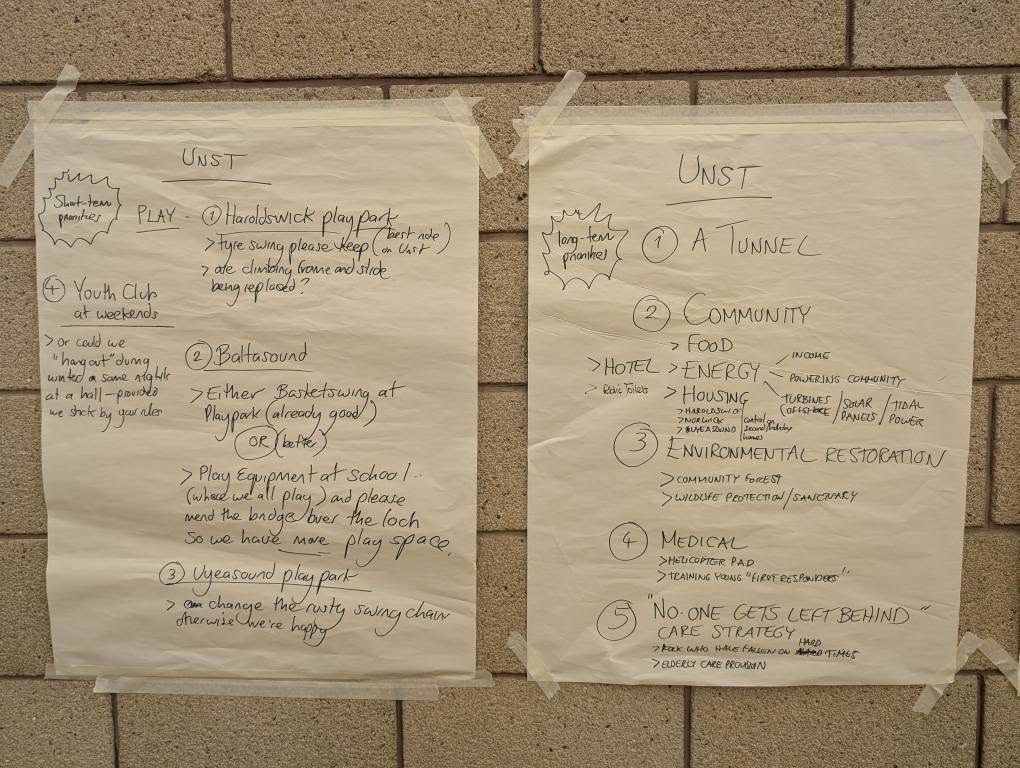 UNST
Short-term
priorities
PLAY - ① Haroldswick playpark
> tyre swing please keep (best ride on Unst)
> are climbing frame and slide
being replaced?
④ Youth Club
at weekends
> or could we
"hang out" during
winter on some nights
at a hall - provided
we stick by your rules
② Baltasound
> Either Basketswing at
Playpark (already good)
OR (better)
> Play Equipment at school
(where we all play) and please
mend the bridge over the loch
so we have more play space.
③ Uyeasound playpark
> change the rusty swing chain
otherwise we're happy
UNST
long-term
priorities
① A TUNNEL
② COMMUNITY
> FOOD
> HOTEL > ENERGY
INCOME
POWERING COMMUNITY
TURBINES (OFFSHORE) / SOLAR PANELS / TIDAL POWER
> Public Toilets
> HOUSING
> HAROLDSWICK
> NORWICK
> UYEASOUND
control on
second/holiday
homes
③ ENVIRONMENTAL RESTORATION
> COMMUNITY FOREST
> WILDLIFE PROTECTION/SANCTUARY
④ MEDICAL
> HELICOPTER PAD
> TRAINING YOUNG "FIRST RESPONDERS"
⑤ "NO-ONE GETS LEFT BEHIND"
CARE STRATEGY
WHO HAVE FALLEN ON HARD TIMES
> ELDERLY CARE PROVISION